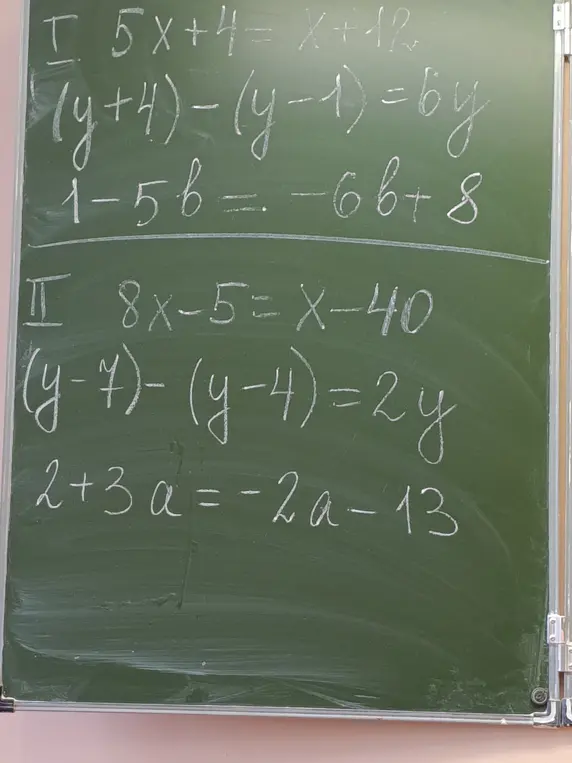 I 5x+4= x+12
(y+4)-(y-1)=6y
1-5b=-6b+8
II 8x-5=x-40
(y-7)-(y-4)=2y
2+3a=-2a-13